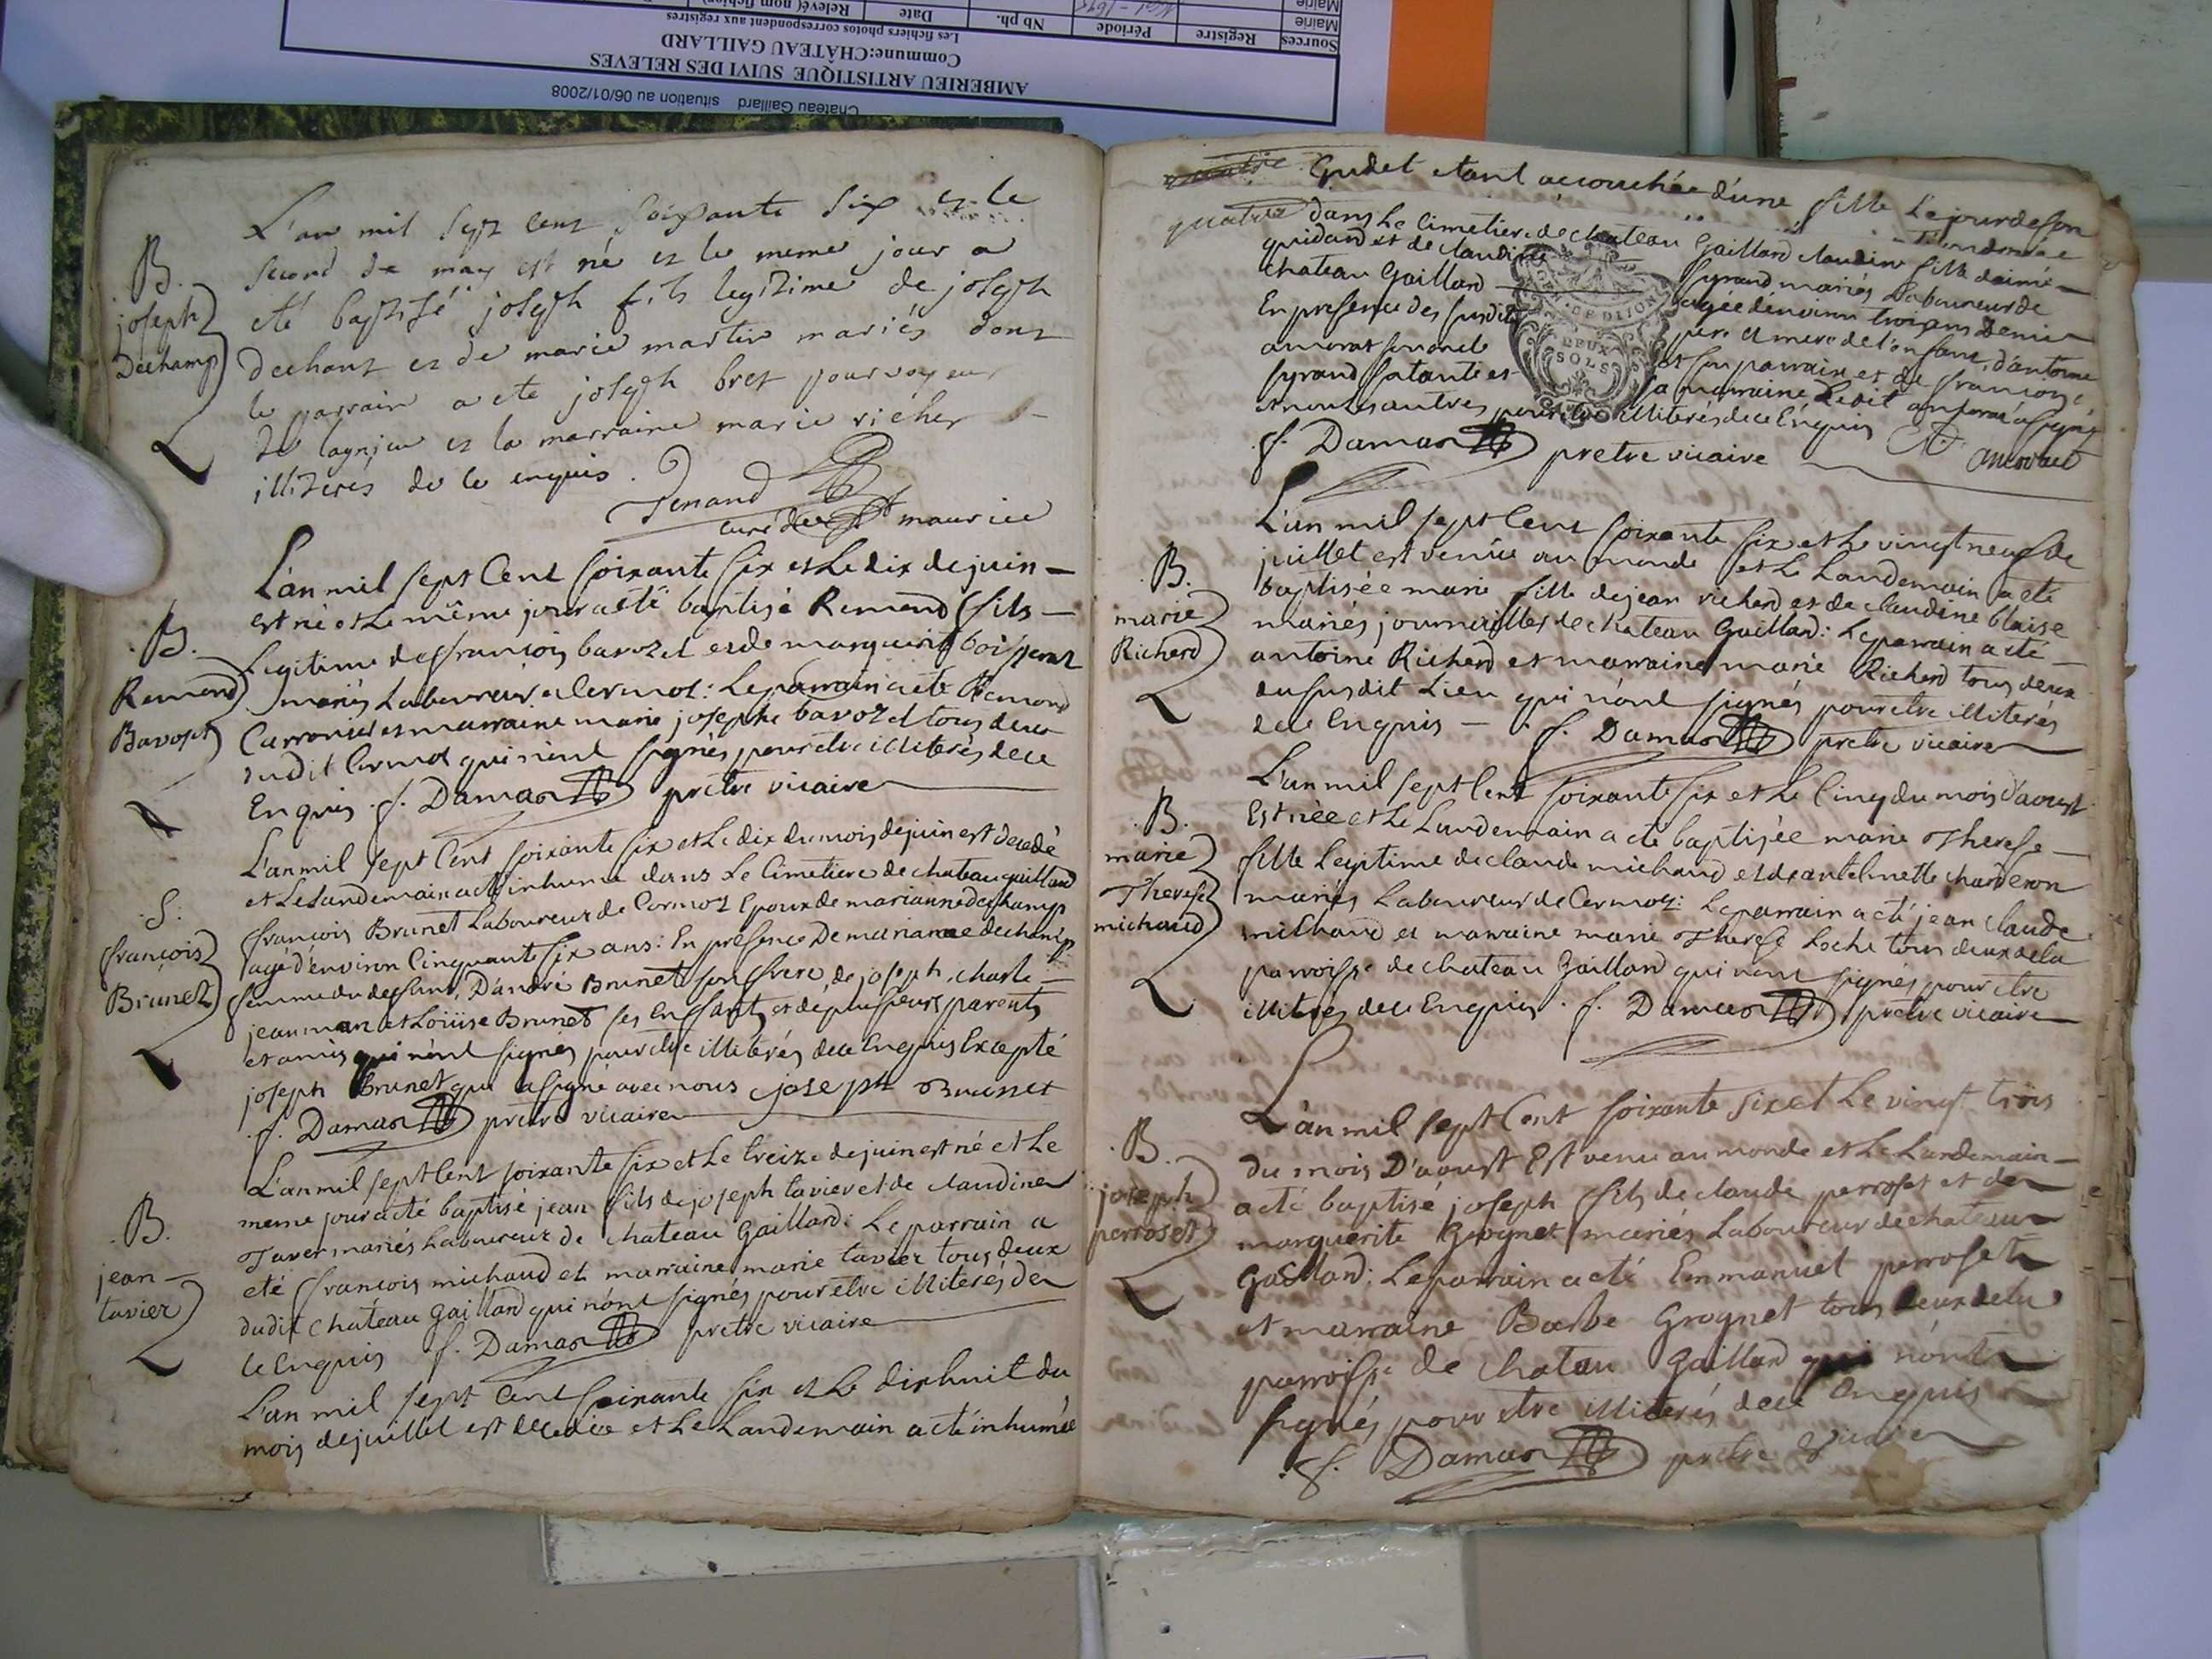 AMBERIEU ARTISTIQUE SUIVI DES RELEVES
Commune:CHÂTEAU GAILLARD
Les fichiers photos correspondent aux registres
Sources Registre Période Nb ph. Date Relevé( nom fichier)
Mairie
Mairie
Chateau Gaillard situation au 06/01/2008
L'an mil sept cent soixante six et le
second de may est né et le meme jour a
eté baptisé joseph fils legitime de joseph
dechant et de marie martin mariés dont
le parrain a ete joseph bret pourvoyeur
de lagnieu et la marraine marie richer
illiterés de ce enquis.
Tenand
curé de St maurice
B.
joseph
Dechamp
L'an mil sept Cent soixante six et Le dix de juin
est né et Le même jour a eté baptisé Remond fils
Legitime de françois bavozet et de marguerite boisserat
mariés Laboureur a Cormoz: Le parrain a ete Remond
Carronier et marraine marie josephe bavozet tous deux
dudit Cormoz qui n'ont signés pour etre illiterés de ce
Enquis. f. Damas prêtre vicaire
B.
Remond
Bavozet
L'an mil sept Cent soixante six et Le dix du mois de juin est decedé
et Le Landemain a eté inhumé dans Le Cimetiere de chateau gaillard
françois Brunet Laboureur de Cormoz Epoux de marianne dechamp
agé d'environ Cinquante six ans: En présence De marianne dechamp
femme du deffunt, D'andré Brunet son frere, de joseph, charle
jean man et Loüise Brunet ses Enffants et de plusieurs parents
et amis qui n'ont signés pour etre illiterés de ce Enquis Excepté
joseph Brunet qui a signé avec nous joseph Brunet
f. Damas prêtre vicaire
S.
françois
Brunet
L'an mil sept Cent soixante six et Le treize de juin est né et Le
meme jour a eté baptisé jean fils de joseph tavier et de claudine
Taver mariés Laboureur de chateau Gaillard: Le parrain a
eté françois michaud et marraine marie tavier tous deux
dudit chateau Gaillard qui n'ont signés pour etre illiterés de
ce Enquis f. Damas prêtre vicaire
B.
jean
tavier
L'an mil sept Cent soixante six et Le dixhuit du
mois de juillet est decedée et Le Landemain a eté inhumée
Gudet etant accouchée d'une fille Le jour de son
quatre dans Le Cimetiere de chateau Gaillard claudine fille daimé
guidard et de claudine fyrand mariés Laboureur de
chateau Gaillard agée d'environ trois ans Demie
En presence des susdits père et mere de l'enfant, d'antoine
amorat son oncle et son parrain et de françoise
fyrand sa tante et sa marraine Ledit amorat a signé
et nous les autres pour etre illiterés de ce Enquis
f. Damas prêtre vicaire A. amorat
DEUX
SOLS
L'an mil sept Cent soixante six et Le vingt neuf de
juillet est venüe au monde et Le Landemain a eté
baptisée marie fille de jean richerd et de claudine blaise
mariés journailler de chateau Gaillard: Le parrain a eté
antoine Richerd et marraine marie Richerd tous deux
du susdit Lieu qui n'ont signés pour etre illiterés
de ce Enquis f. Damas prêtre vicaire
B.
marie
Richerd
L'an mil sept Cent soixante six et Le Cinq du mois d'aoust
Est née et Le Landemain a eté baptisée marie Therese
fille Legitime de claude michaud et de antelmette charderon
mariés Laboureur de Cormoz: Le parrain a eté jean claude
michaud et marraine marie Therese Loche tous deux de la
parroisse de chateau Gaillard qui n'ont signés pour etre
illiterés de ce Enquis. f. Damas prêtre vicaire
B.
marie
Therese
michaud
L'an mil sept Cent soixante six et Le vingt trois
du mois D'aoust Est venu au monde et Le Landemain
a eté baptisé joseph fils de claude perroset et de
marguerite Grognet mariés Laboureur de chateau
Gaillard: Le parrain a eté Emmanüel perroset
et marraine Barbe Grognet tous deux de la
parroisse de chateau Gaillard qui n'ont
signés pour etre illiterés de ce Enquis
f. Damas prêtre vicaire
B.
joseph
perroset